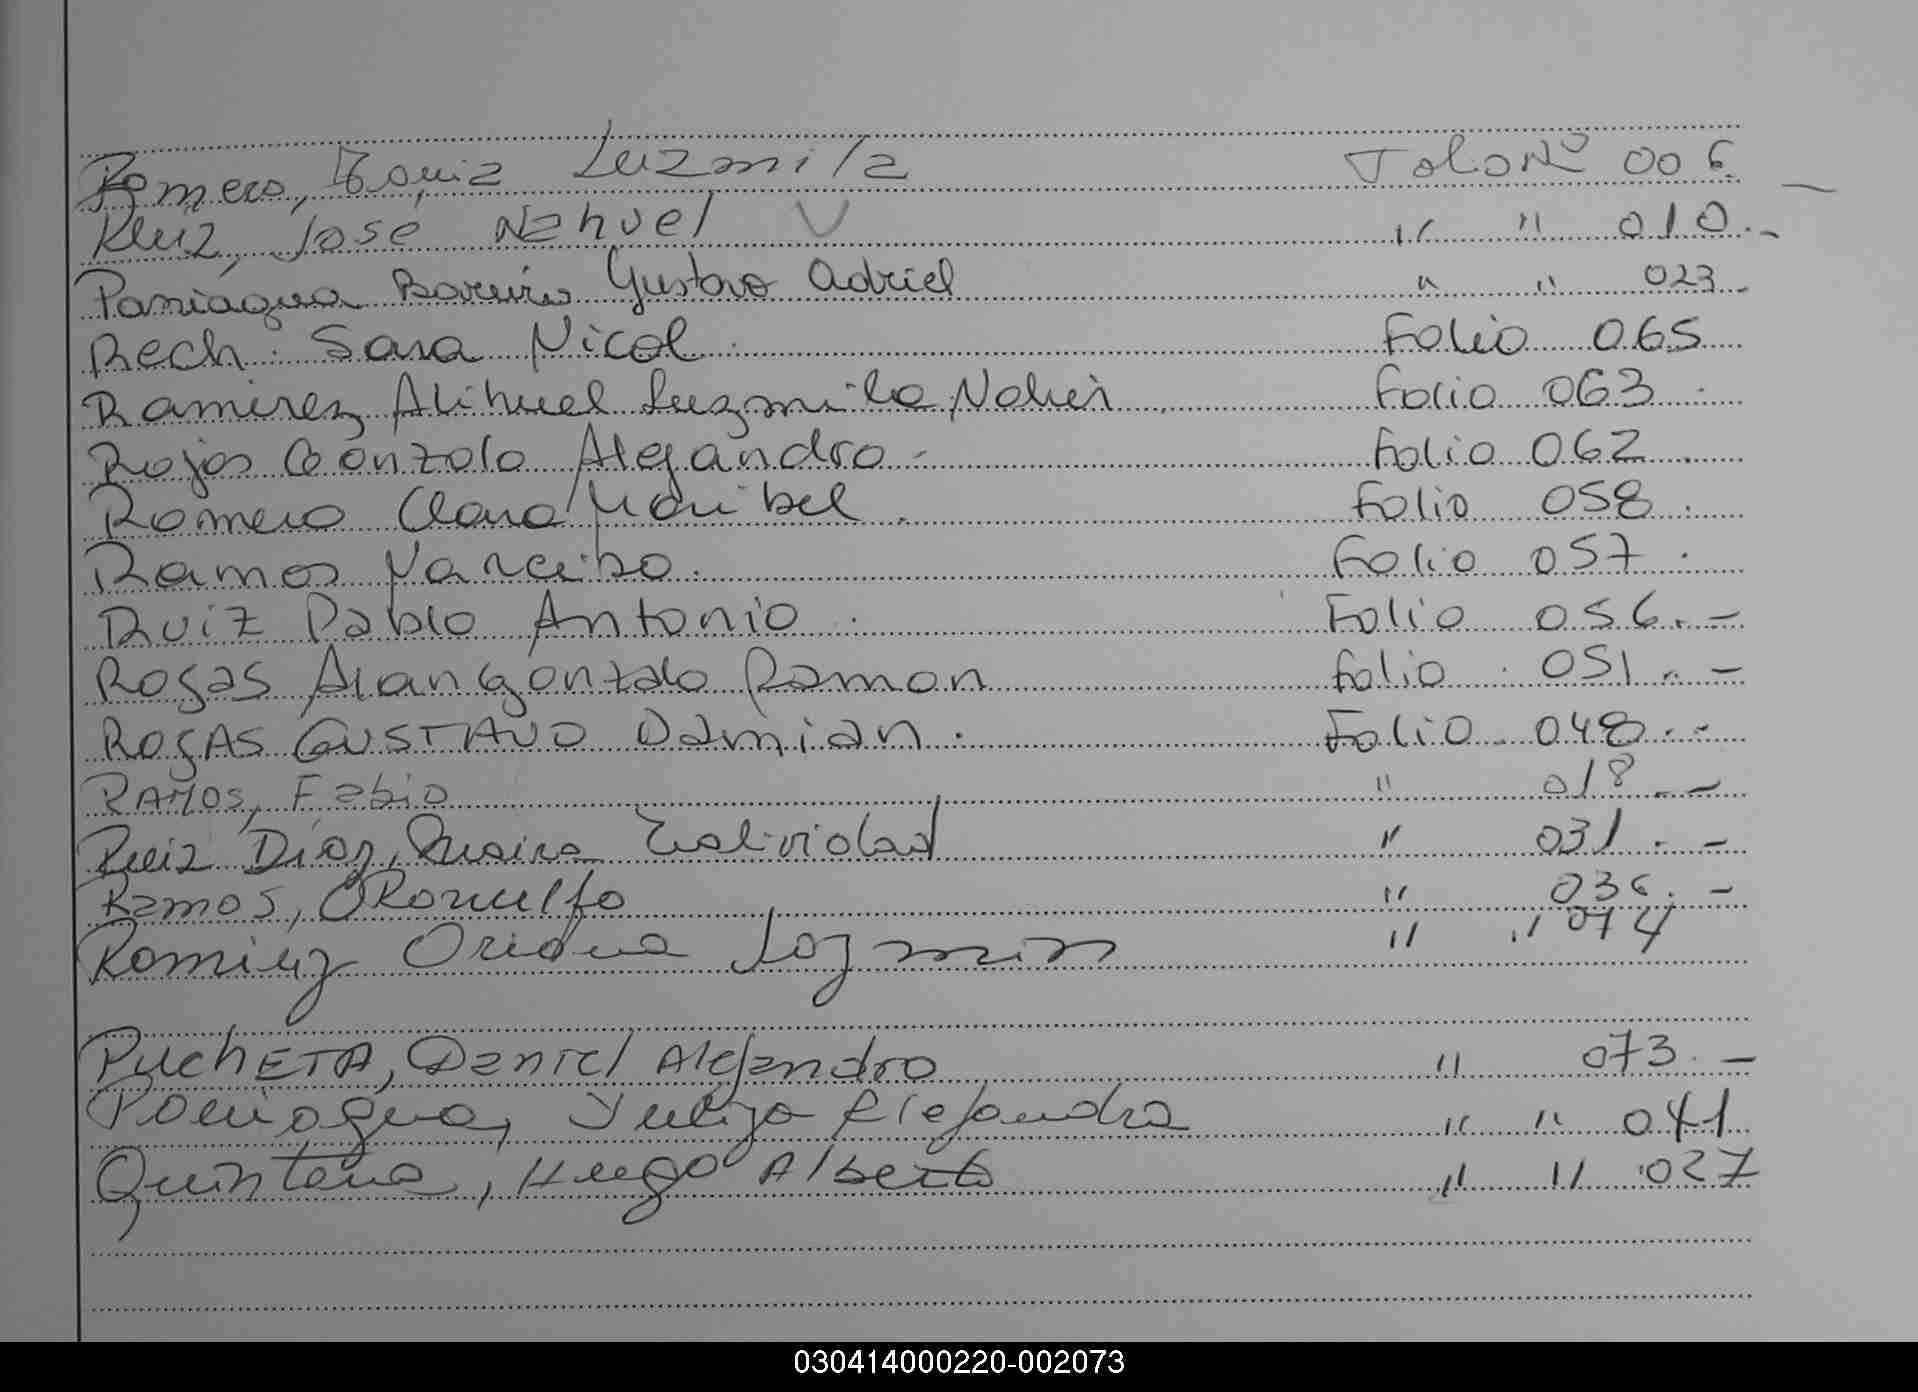 Romero, Luzmila Folio Nº 006
Ruiz, José Nahuel " " 010.-
Paniagua Barreiro Gustavo Adriel " " 023.-
Rech Sara Nicol Folio 065
Ramirez Alihuel Luzmila Folio 063.
Rojas Gonzalo Alejandro. Folio 062.
Romero Clara Maribel. Folio 058.
Ramos Narciso. Folio 057.
Ruiz Pablo Antonio. Folio 056.-
Rojas Alan gonzalo Ramon Folio 051.-
ROJAS GUSTAVO Damian. Folio 048.-
RAMOS, Fabio " 018.-
Ruiz Díaz, Natividad " 031.-
Ramos, " 036.-
Ramirez Oriana Jazmin " " 074
PUCHETA, Daniel Alejandro " 073.-
Paniagua, Alejandra " " 041
Quintana, Hugo Alberto " " 027
030414000220-002073